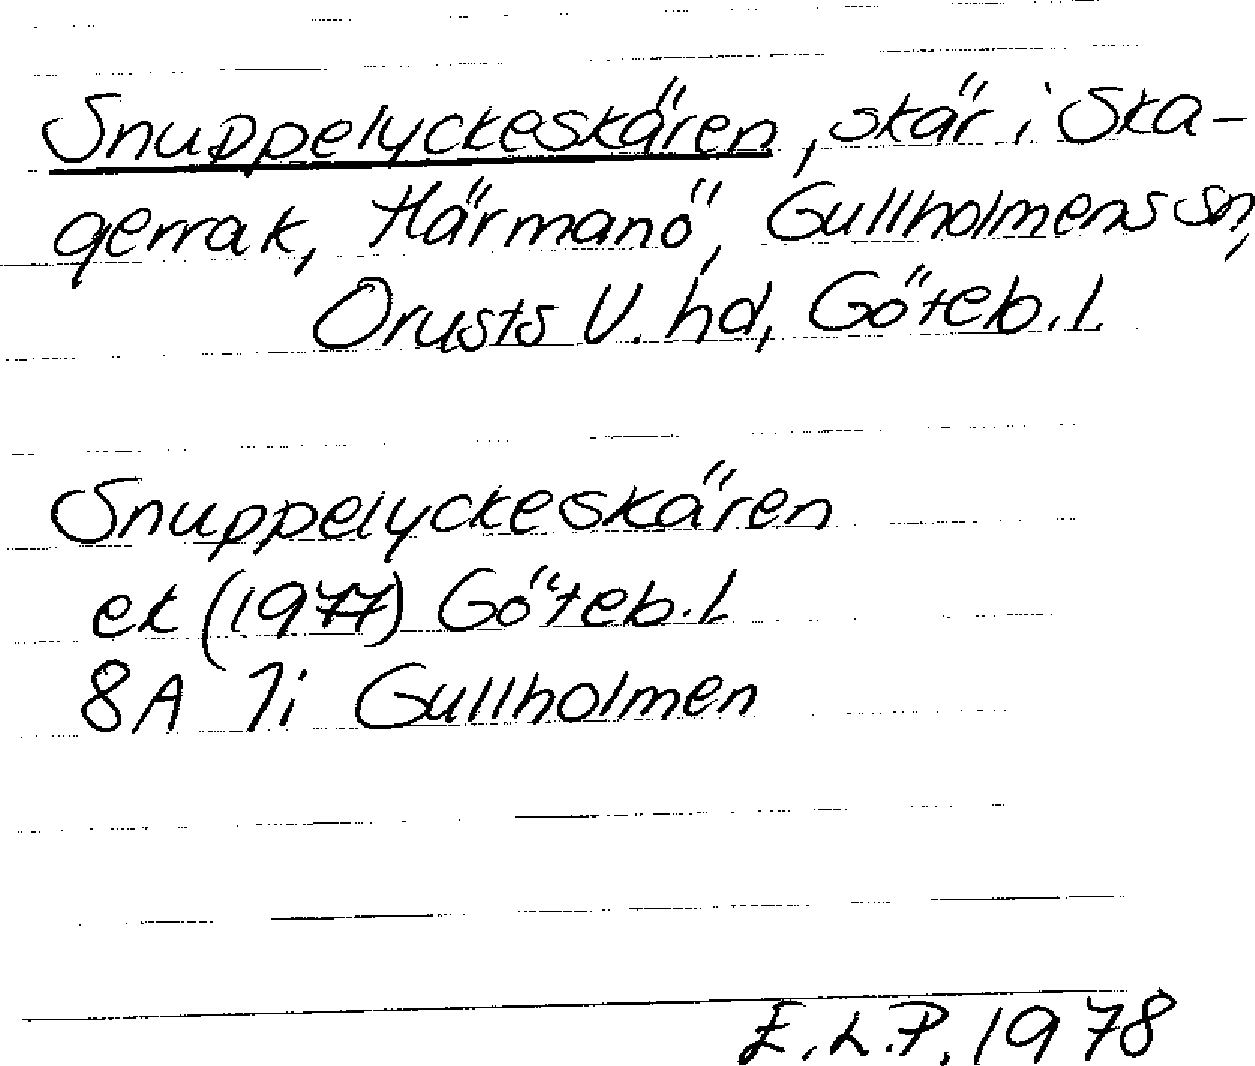 Snuppelyckeskären, skär i Ska-
gerrak, Härmanö, Gullholmens sn,
Orusts V. hd, Göteb. l.
Snuppelyckeskären
ek (1977) Göteb. l.
8A 7i Gullholmen
E.L.P. 1978